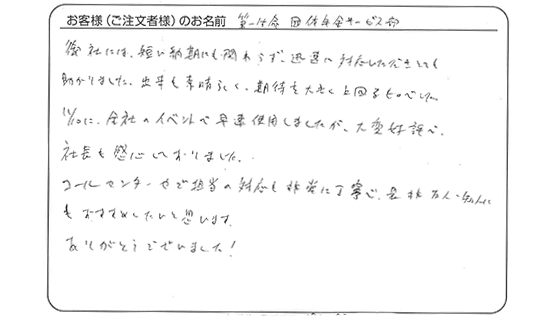 お客様（ご注文者様）のお名前 第一生命 団体年金サービス部
御社には、短い納期にも関わらず、迅速に対応していただきとても
助かりました。出来も素晴らしく、期待を大きく上回るものでした。
11/20に、会社のイベントで早速使用しましたが、大変好評で、
社長も感心しておりました。
コールセンターやご担当の対応も非常に丁寧で、是非友人・知人に
もおすすめしたいと思います。
ありがとうございました！